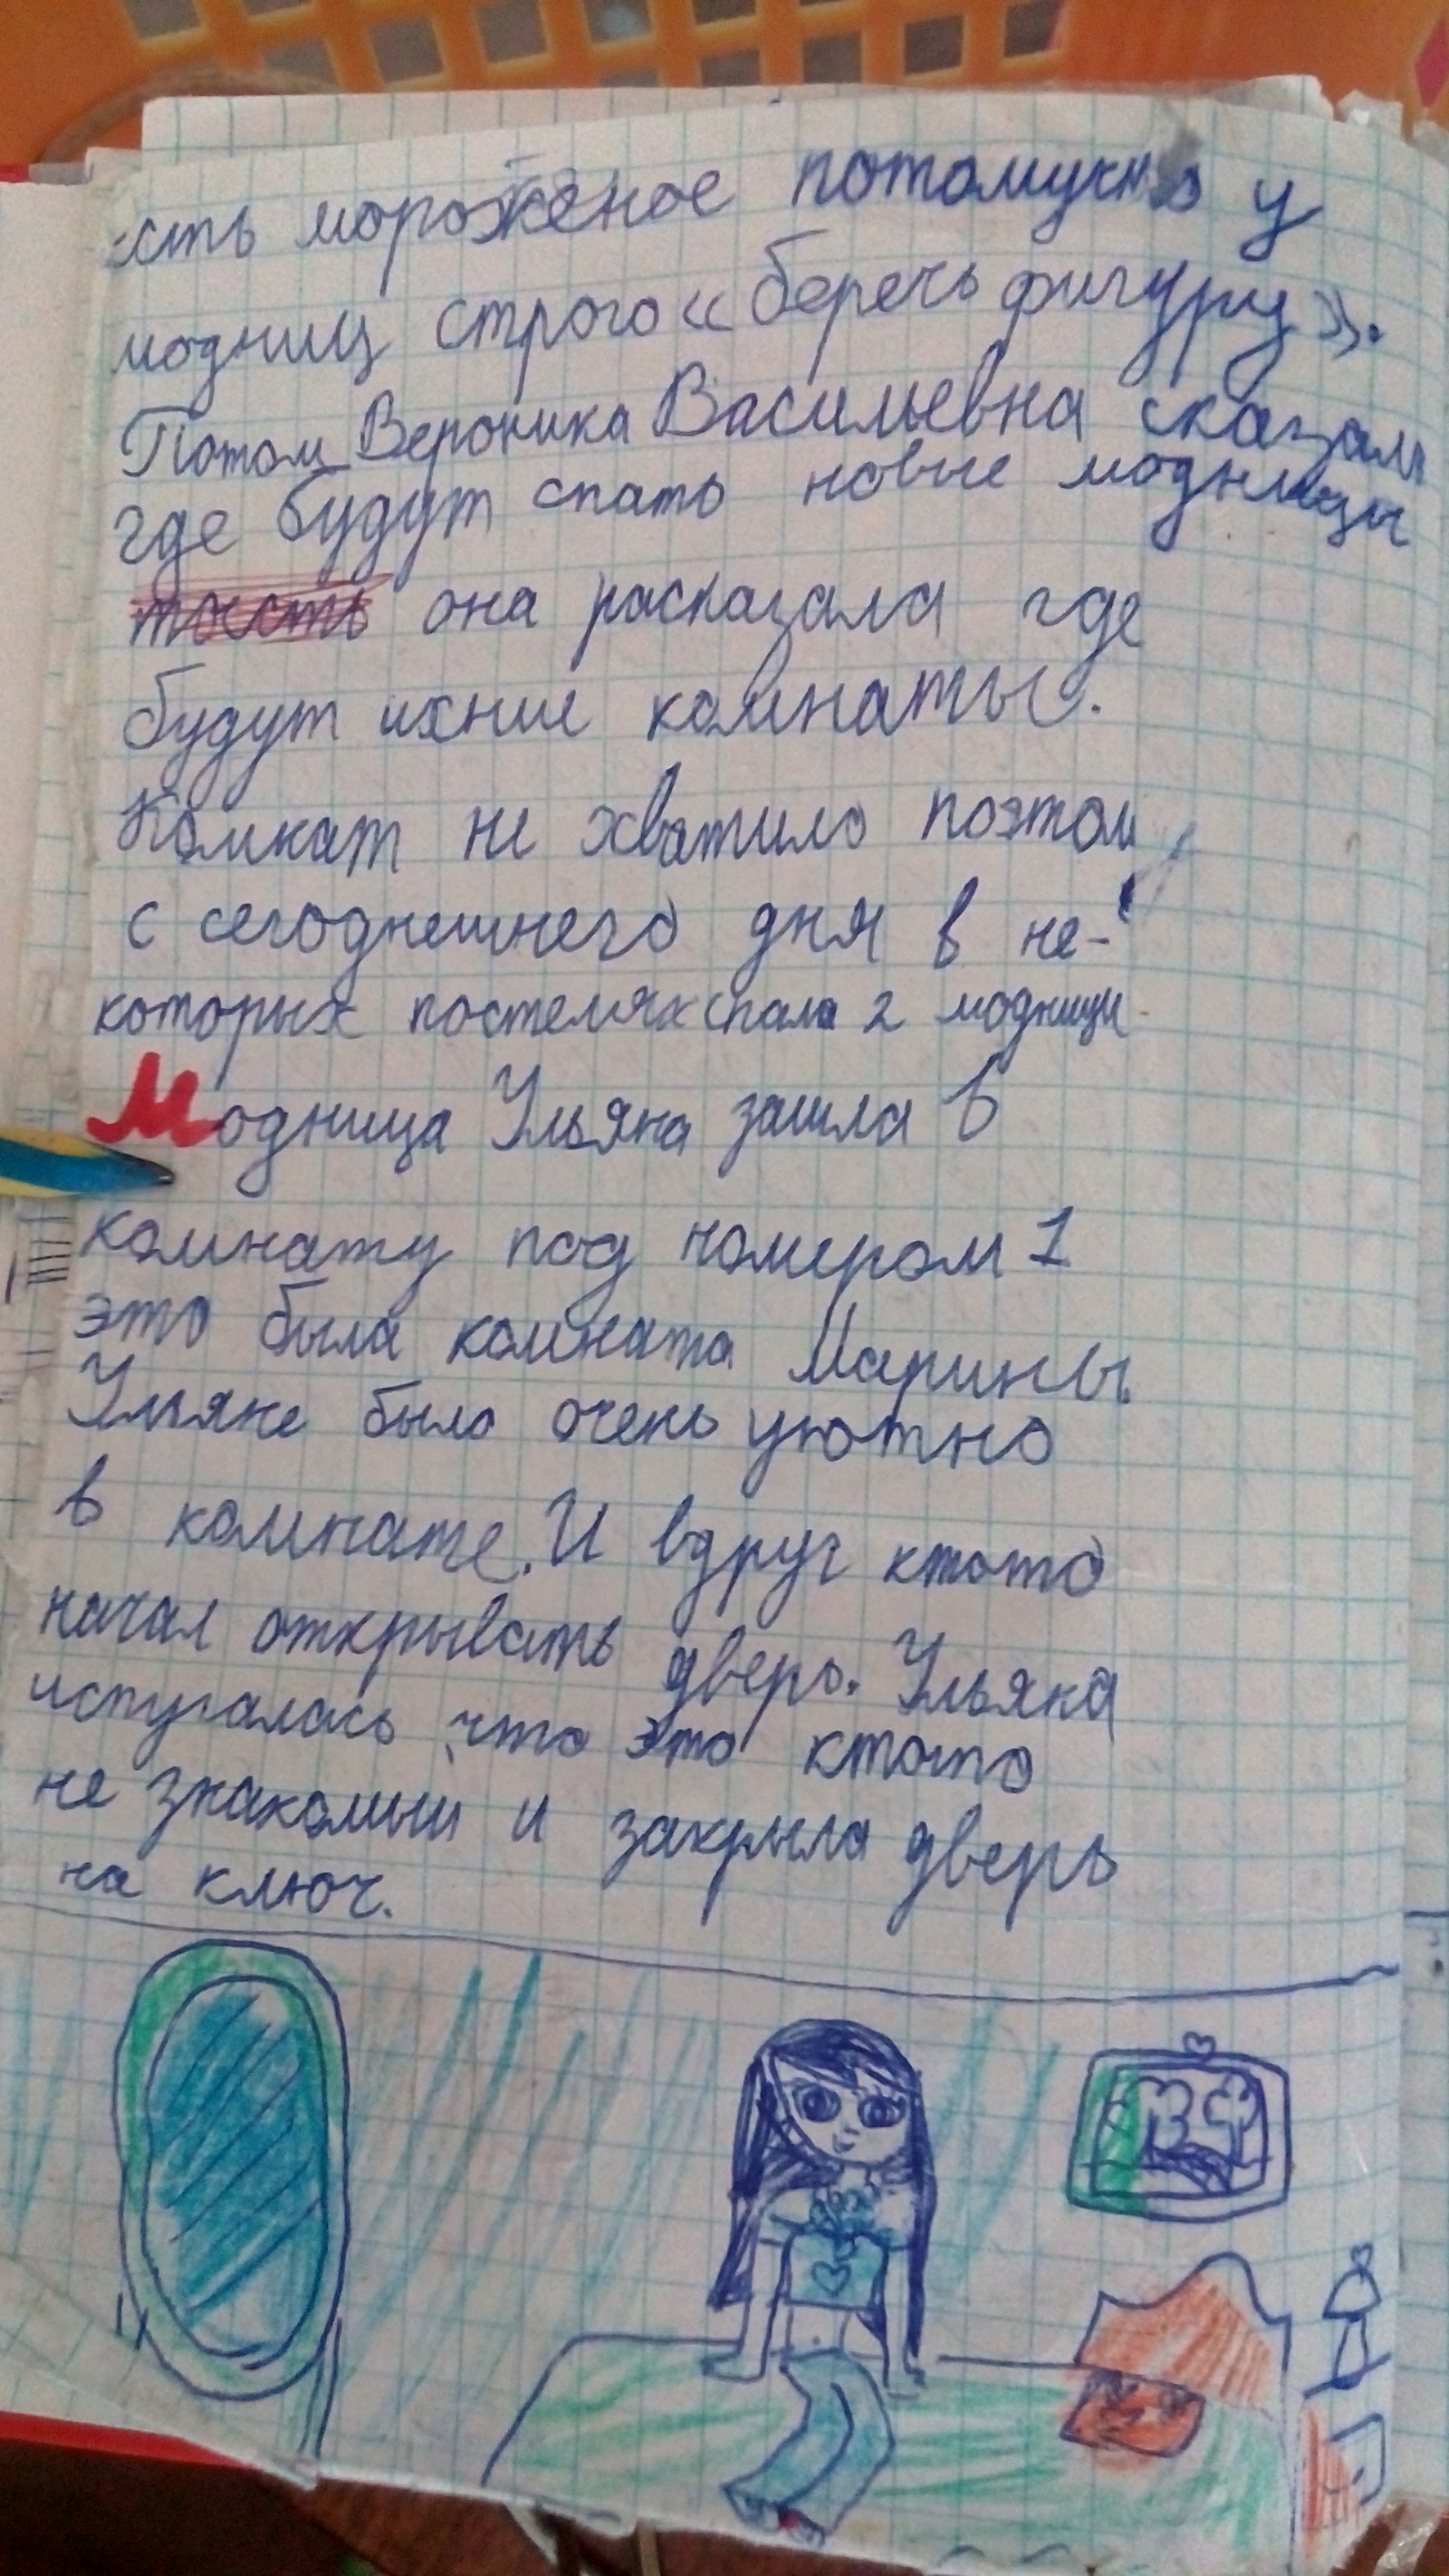 есть мороженое потомучто у
модниц строго «беречь фигуру».
Потом Вероника Васильевна сказала
где будут спать новые модницы
тоесть она расказала где
будут ихние комнаты.
Комнат не хватило поэтому
с сегоднешнего дня в не-
которых постелях спали 2 модницы
Модница Ульяна зашла в
комнату под номером 1
это была комната Марины.
Ульяне было очень уютно
в комнате. И вдруг ктото
начал открывать дверь. Ульяна
испугалась, что это ктото
не знакомый и закрыла дверь
на ключ.